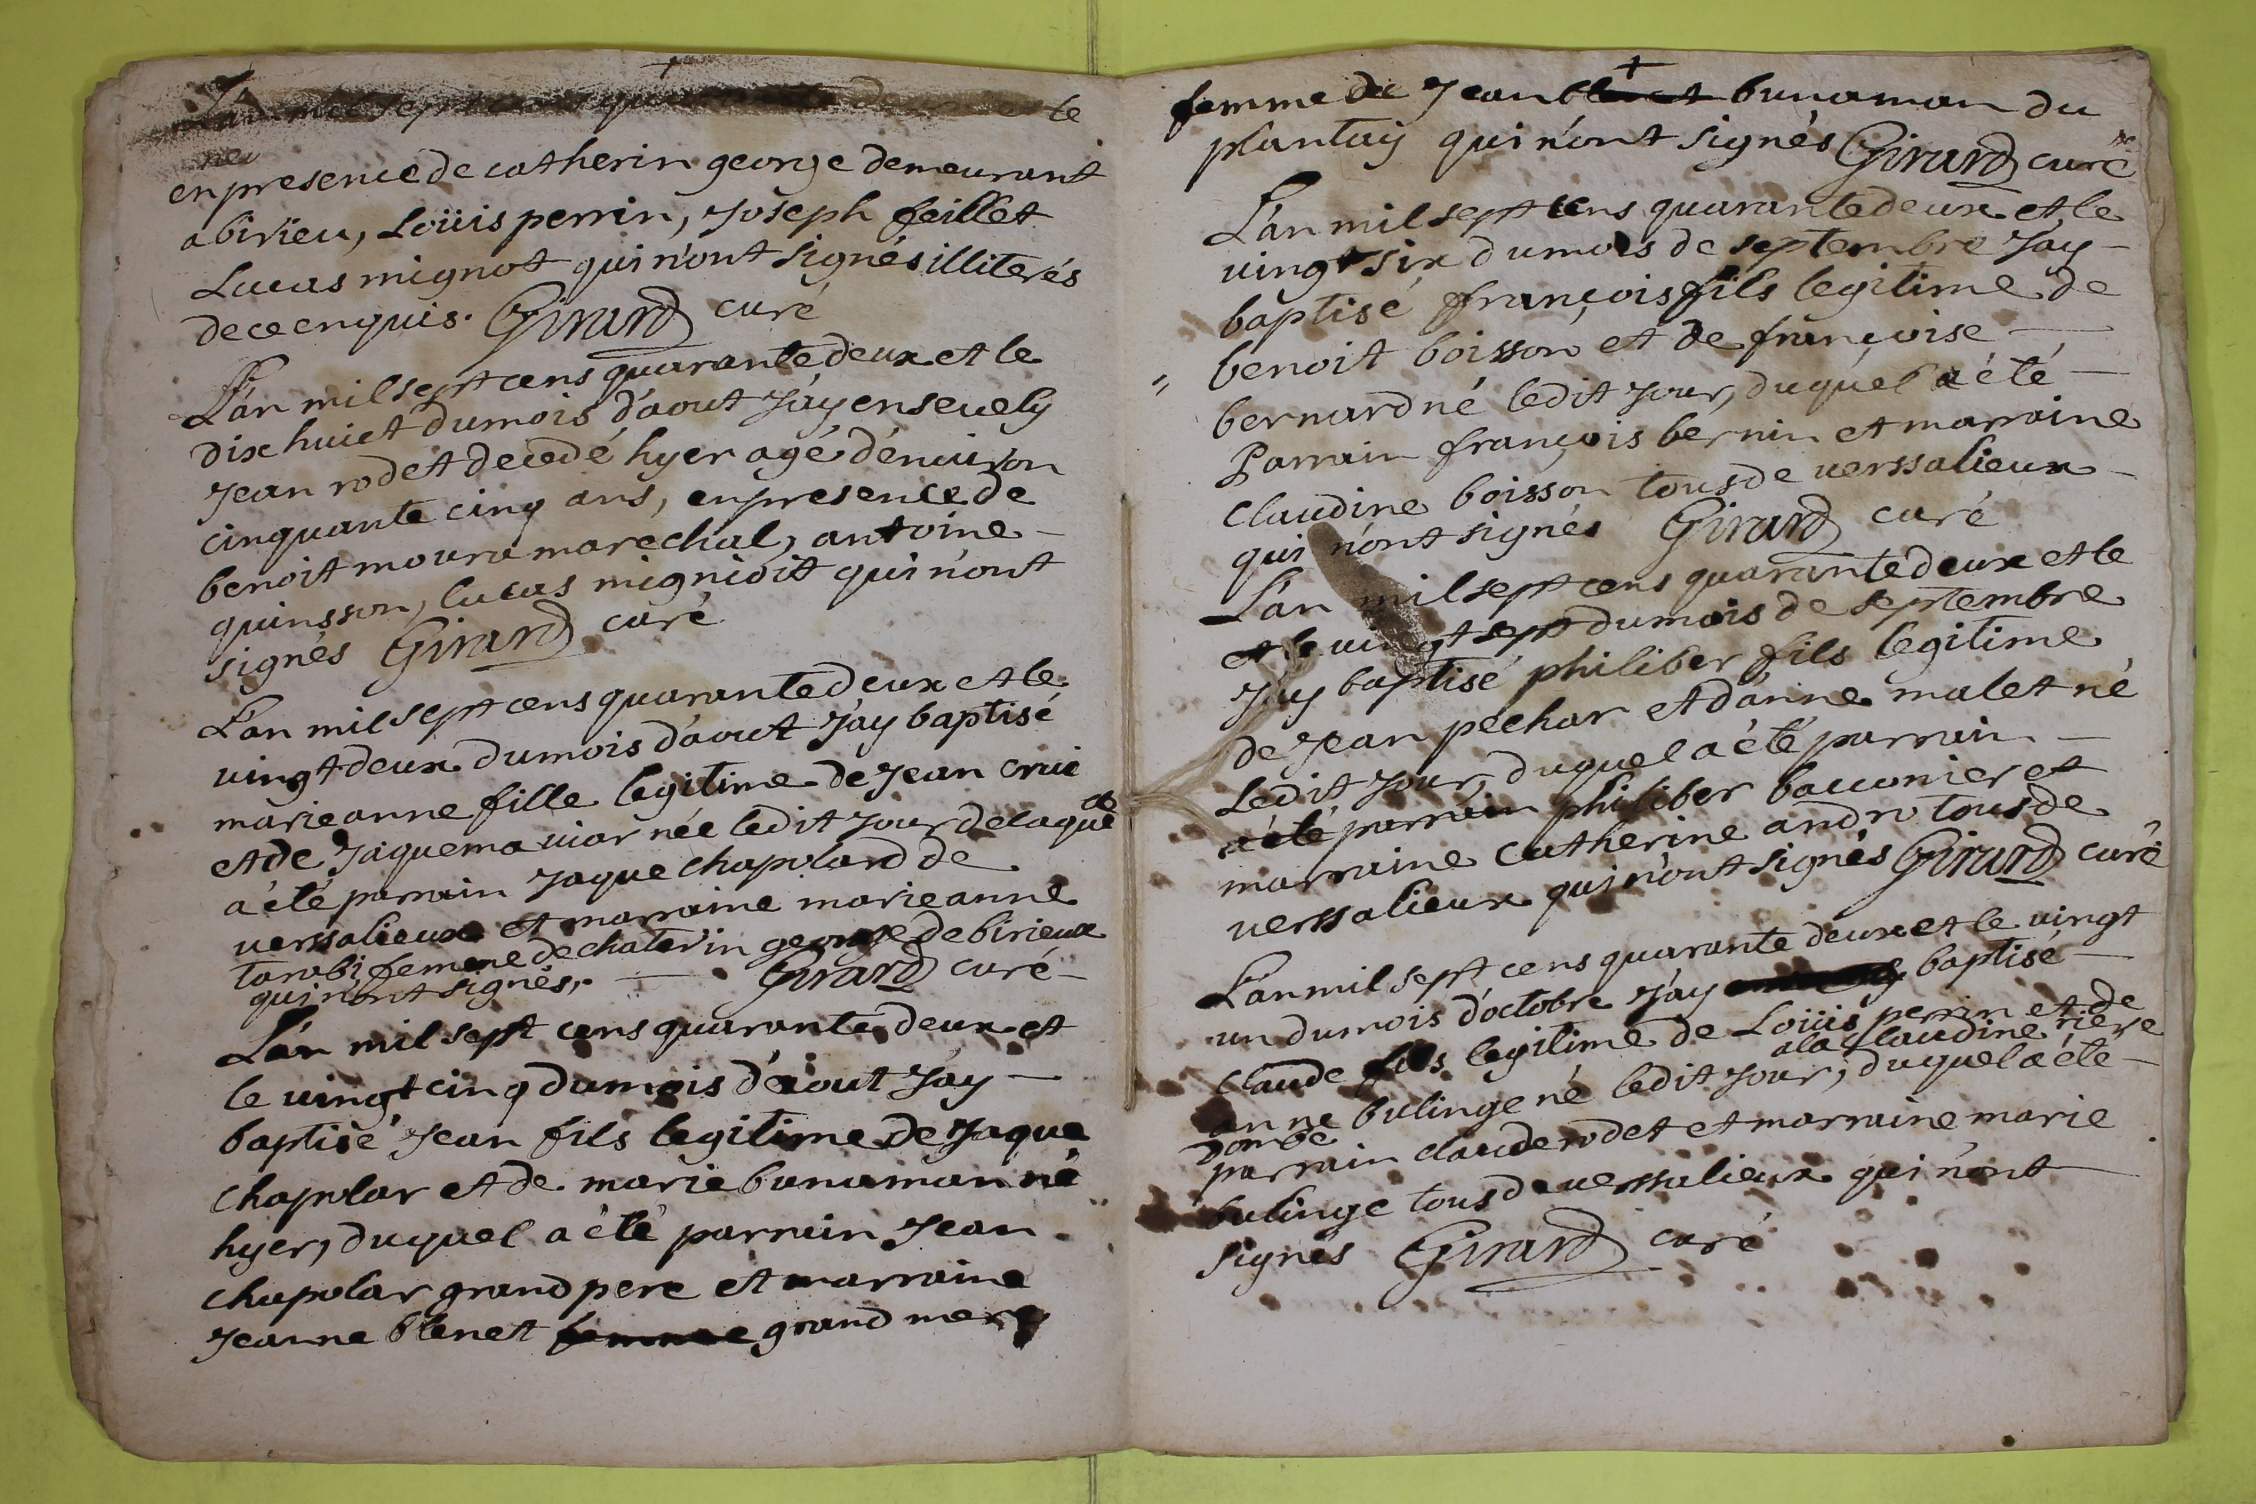 L'an mil sept cens quarante deux et le
en presence de catherin george demeurant
a birieu, Loüis perrin, Joseph feillet
Lucas mignot qui n'ont signés illiterés
de ce enquis. Girard curé
L'an mil sept cens quarante deux et le
dix huict du mois d'aout J'ay ensevely
Jean rodet decedé hyer agé d'environ
cinquante cinq ans, en presence de
benoit moura marechal, antoine
quinsson, lucas mignioit qui n'ont
signés Girard curé
L'an mil sept cens quarante deux et le
vingt deux du mois d'aout J'ay baptisé
marie anne fille legitime de Jean cruc
et de Jaquema viar née ledit jour de laque
a été parrain Jaque chapolard de
verssalieux et marraine marie anne
tarabi femme de chaterin george de birieux
qui n'ont signés. Girard curé
L'an mil sept cens quarante deux et
le vingt cinq du mois d'aout J'ay
baptisé Jean fils legitime de Jaque
chapolar et de marie bunaman né
hyer, duquel a été parrain Jean
chapolar grand pere et marraine
Jeanne blenet femme grand mere
femme de Jean blenet bunaman du
plantay qui n'ont signés Girard curé
L'an mil sept cens quarante deux et le
vingt six du mois de septembre J'ay
baptisé françois fils legitime de
benoit boisson et de françoise
bernard né ledit jour, duquel a été
Parrain françois bernin et marraine
claudine boisson tous de verssalieux
qui n'ont signés Girard curé
L'an mil sept cens quarante deux et le
et le vingt sept du mois de septembre
J'ay baptisé philiber fils legitime
de Jean pechar et d'anne malet né
Ledit Jour, duquel a été parrain
a été parrain philiber bacconier et
marraine catherine andre tous de
verssalieux qui n'ont signés Girard curé
L'an mil sept cens quarante deux et le vingt
un du mois d'octobre J'ay baptisé
claude fils legitime de Loüis perrin et de
a la claudine riere
anne bulinge né ledit jour, duquel a été
dombe
parrain claude rodet et marraine marie
bulinge tous de verssalieux qui n'ont
signés Girard curé